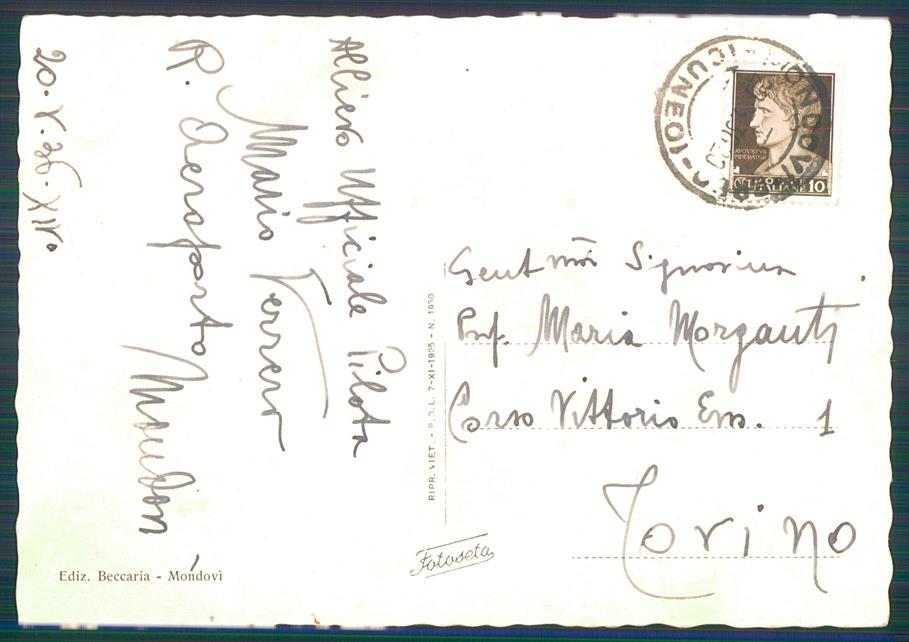 Allievo Ufficiale Pilota
Mario Ferrero
R. Aeroporto Mondovì
20.V.36.XIV°
Gent.ma Signorina
Prof. Maria Morganti
Corso Vittorio Em. 1
Torino
MONDOVI
CUNEO
AVGVSTVS
IMPERATOR
POSTE
ITALIANE 10
RIPR. VIET. - P.D.L. 7-XI-1925 - N. 1950
Fotoseta
Ediz. Beccaria - Mondovì